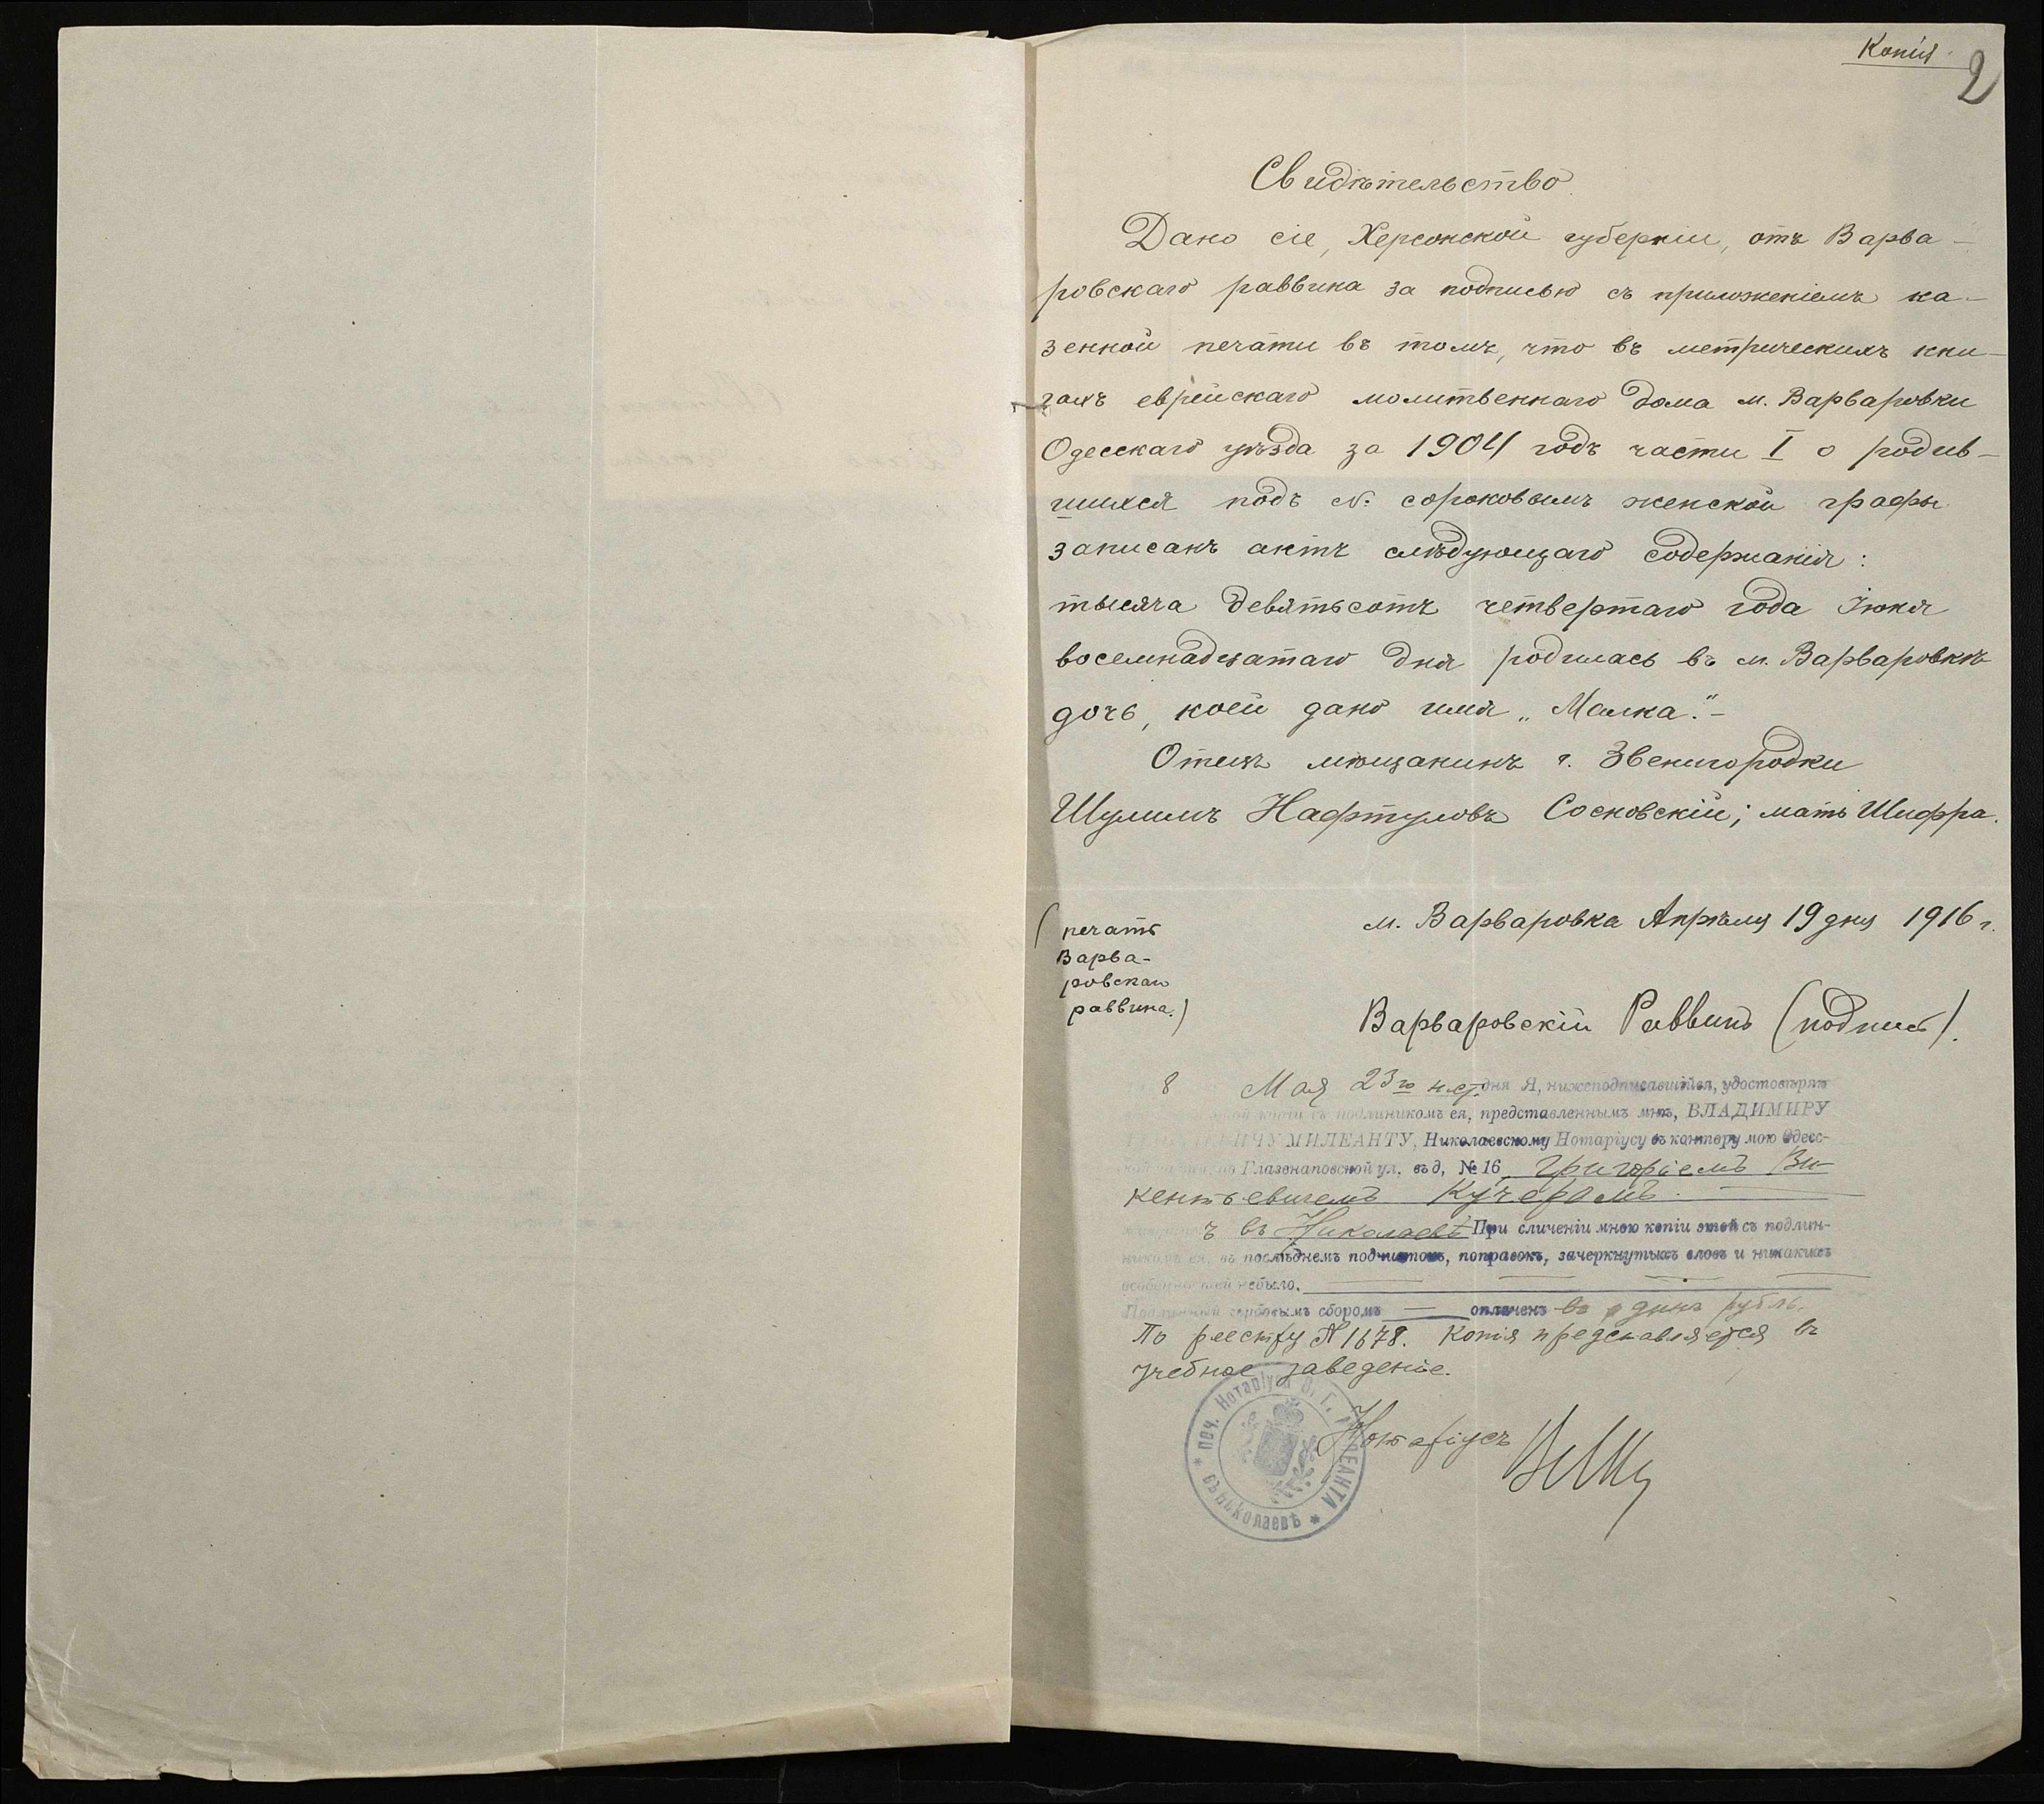 Копія
2
Свидѣтельство
Дано сіе, Херсонской губерніи, отъ Варва-
ровскаго раввина за подписью съ приложеніемъ ка-
зенной печати въ томъ, что въ метрическихъ кни-
гахъ еврейскаго молитвеннаго дома м. Варваровки
Одесскаго уѣзда за 1904 годъ части I о родив-
шихся подъ №. сороковымъ женской графы
записанъ актъ слѣдующаго содержанія:
тысяча девятьсотъ четвертаго года Іюня
восемнадцатаго дня родилась въ м. Варваровкѣ
дочь, коей дано имя „Малка".-
Отецъ мѣщанинъ г. Звенигородки
Шулимъ Нафтуловъ Сосновскій; мать Шифра.
м. Варваровка Апрѣля 19 дня 1916 г.
(печать
Варва-
ровскаго
раввина.)
Варваровскій Раввинъ (подпись).
8 Мая 23го н.ст. дня Я, нижеподписавшійся, удостовѣряю
копіи съ подлинникомъ ея, представленнымъ мнѣ, ВЛАДИМИРУ
МИЛЕАНТУ, Николаевскому Нотаріусу въ контору мою Одесс-
Глазенаповской ул. въ д, № 16, Григоріемъ Ви-
кентьевичемъ Кучеромъ.
въ Николаевѣ При сличеніи мною копіи этой съ подлин-
никомъ ея, въ послѣднемъ подчистокъ, поправокъ, зачеркнутыхъ словъ и никакихъ
особенностей небыло.
Подлинный гербовымъ сборомъ — оплаченъ въ одинъ рубль.
По реестру № 1678. Копія представляется въ
учебное заведеніе.
Нотаріусъ
* печ. Нотаріуса В. Г. МИЛЕАНТА * въ Николаевѣ